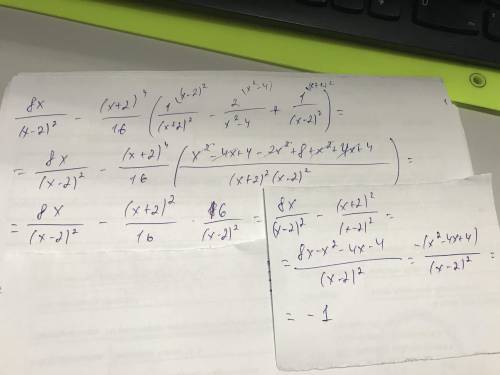 8x/(x-2)² - (x+2)⁴/16 (1^(x-2)²/(x+2)² - 2^(x²-4)/(x²-4) + 1^(x+2)²/(x-2)²) =
= 8x/(x-2)² - (x+2)⁴/16 ((x²-4x+4-2x²+8+x²+4x+4)/((x+2)²(x-2)²)) =
= 8x/(x-2)² - (x+2)²/16 · 16/(x-2)² = 8x/(x-2)² - (x+2)²/(x-2)² =
= (8x-x²-4x-4)/(x-2)² = -(x²-4x+4)/(x-2)² =
= -1